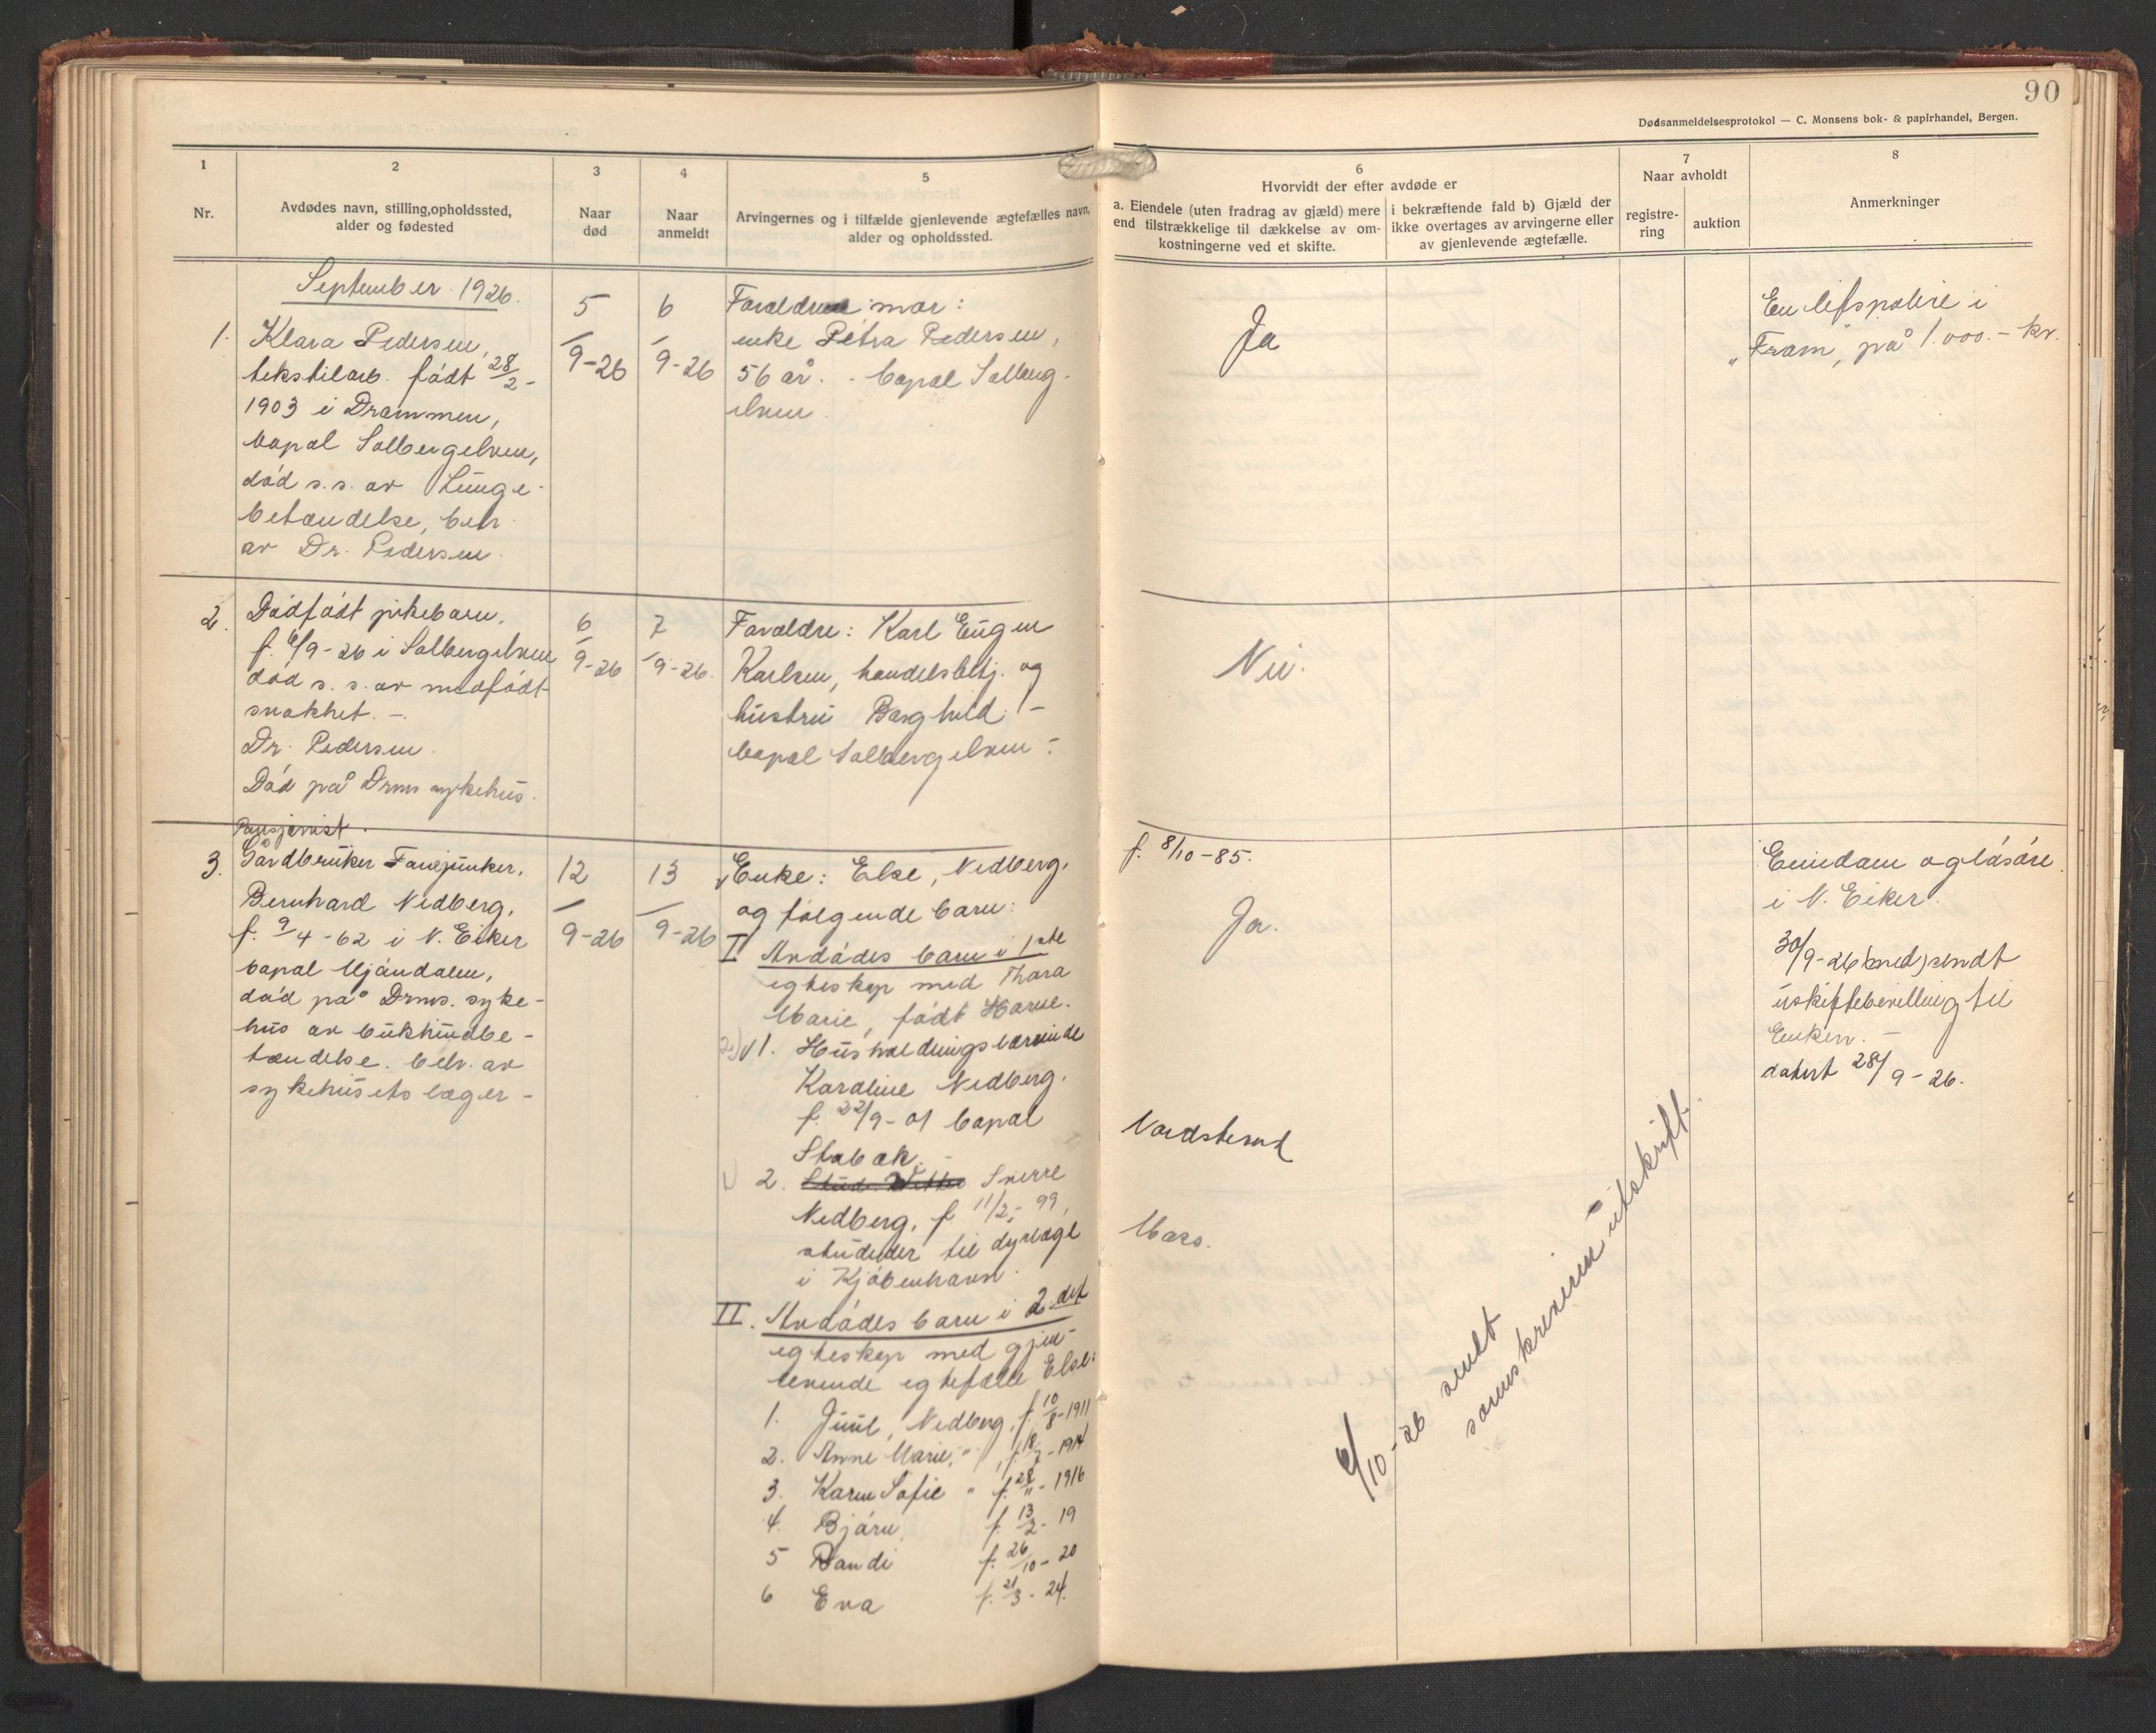 90
Dødsanmeldelsesprotokol — C. Monsens bok- & papirhandel, Bergen.
1
Nr.
2
Avdødes navn, stilling, opholdssted,
alder og fødested
3
Naar
død
4
Naar
anmeldt
5
Arvingernes og i tilfælde gjenlevende ægtefælles navn,
alder og opholdssted.
6
Hvorvidt der efter avdøde er
a. Eiendele (uten fradrag av gjæld) mere
end tilstrækkelige til dækkelse av om-
kostningerne ved et skifte.
i bekræftende fald b) Gjæld der
ikke overtages av arvingerne eller
av gjenlevende ægtefælle.
7
Naar avholdt
registre-
ring
auktion
8
Anmerkninger
September 1926.
1. Klara Pedersen,
tekstilarb. født 28/2-
1903 i Drammen,
bopæl Solbergelven,
død s.s. av Lunge-
betændelse, beh.
av Dr. Pedersen.
5/9-26
6/9-26
Forældre mor:
enke Petra Pedersen,
56 år. - bopæl Solberg-
elven.
Ja
En lifspolise i
"Fram", på 1.000.- kr.
2. Dødfødt pikebarn.
f. 6/9-26 i Solbergelven
død s. s. av medfødt
svakhet. -
Dr. Pedersen.
Død på Drms sykehus.
6/9-26
7/9-26.
Forældre: Karl Eugen
Karlsen, handelsbetj. og
hustru Borghild -
bopæl Solbergelven -
Nei.
Pensjonist.
3. Gårdbruker Fanejunker,
Bernhard Nedberg,
f. 9/4-62 i N. Eiker
bopæl Mjøndalen,
død på Drms. syke-
hus av bukhindbe-
tændelse. beh. av
sykehusets læger -
12/9-26
13/9-26
Enke: Else, Nedberg,
og følgende barn:
I Avdødes barn i 1ste
egteskap med Thora
Marie, født Horne.
1. Husholdningslærerinde
Karoline Nedberg.
f. 22/9-01 bopæl
Stabæk. -
2. Sverre
Nedberg, f 11/2- 99,
studerer til dyrlæge
i Kjøbenhavn.
II. Avdødes barn i 2det
egteskap med gjen-
levende egtefælle Else:
1. Juul, Nedberg, f. 10/8-1911
2. Anne Marie, " f. 18/7-1914
3. Karen Sofie " f. 28/11-1916
4. Bjørn, f. 13/2-19
5 Randi f. 26/10-20
6 Eva f. 21/3-24.
f. 8/10-85.
Ja.
Nordstrand
Eiendom og løsøre
i N. Eiker.
30/9-26 sendt
uskiftebevilling til
Enken. -
datert 28/9-26.
6/10-26 sendt
samskreven utskrift.